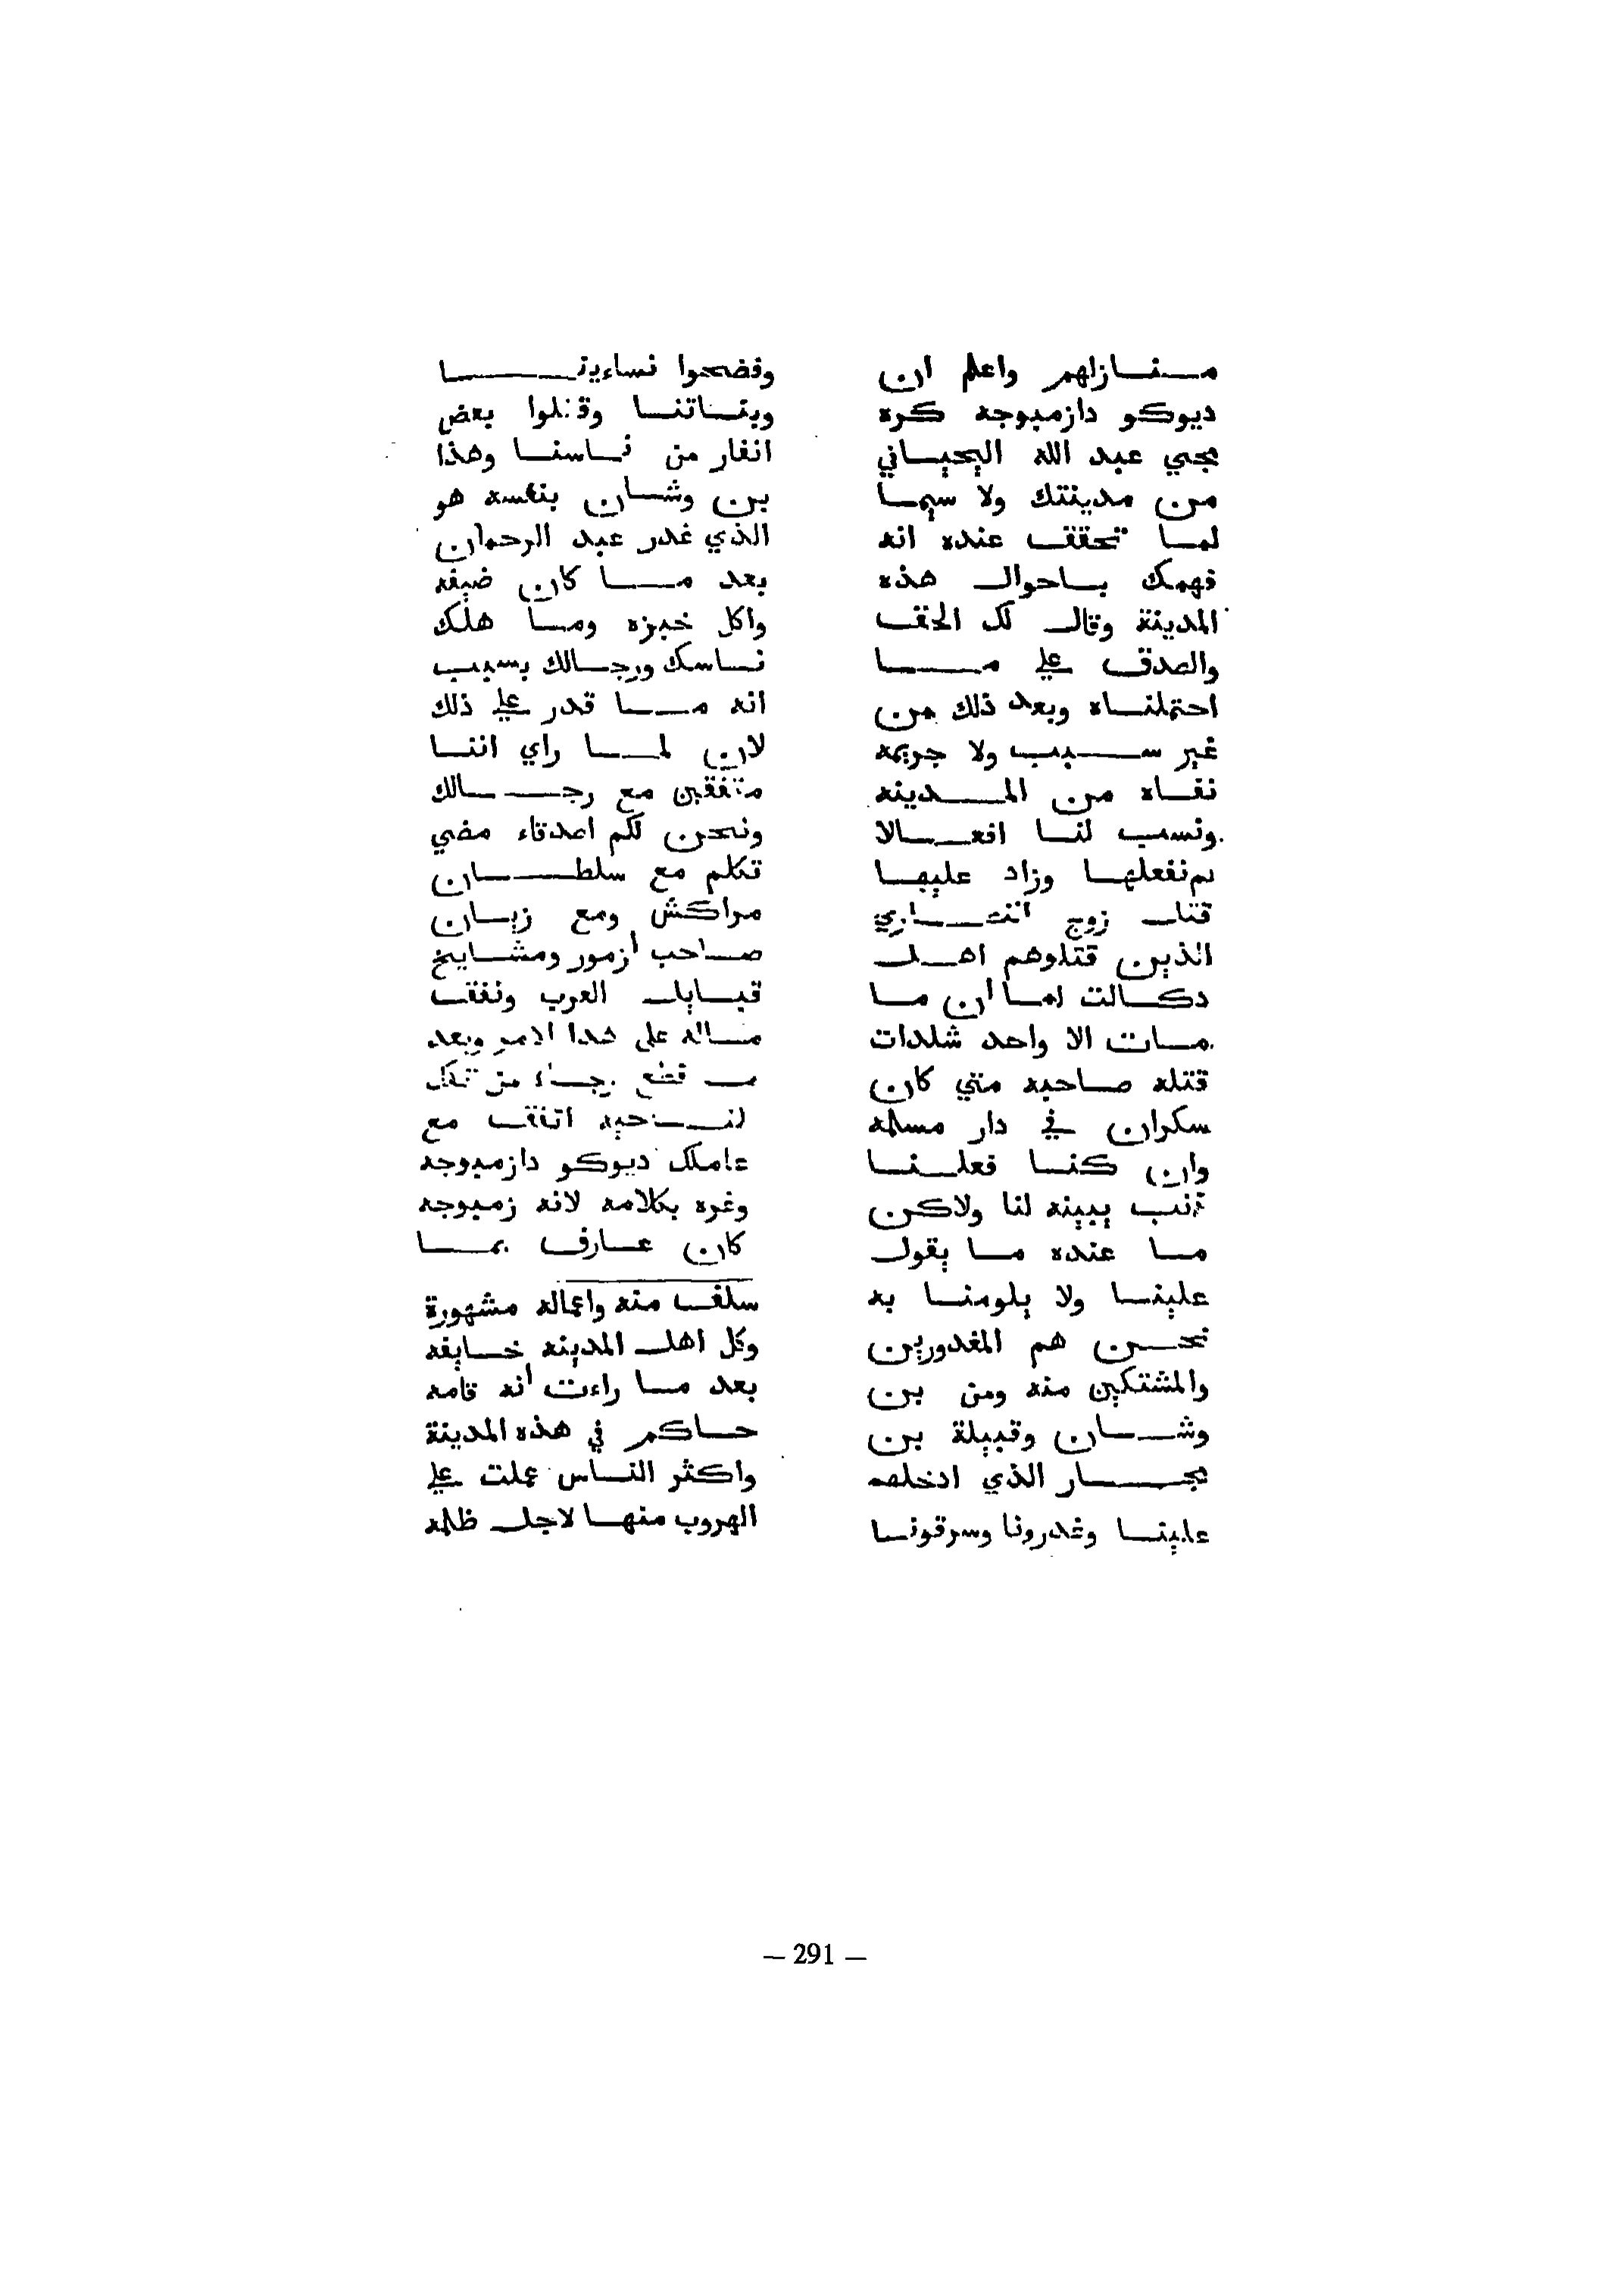 منازلهم واعلم ان
ديوكو دازمبوجه كره
يجي عبد الله اليحياني
من مدينتك ولا سيما
لما تحقق عنده انه
فهمك باحوال هذه
المدينة وقال لك الحق
والصدق علي ما
احتملناه وبعد ذلك من
غير سبب ولا جريمه
نفاه من المدينه
ونسب لنا افعالا
لم نفعلها وزاد عليها
قتل زوج انصاري
الذين قتلوهم اهل
دكالت لما ان ما
مات الا واحد شلدات
قتله صاحبه متي كان
سكران في دار مسلمه
وان كنا فعلنا
ذنب يبينه لنا ولاكن
ما عنده ما يقول
علينا ولا يلومنا به
نحن هم المغدورين
والمشتكين منه ومن بن
وشان وقبيلة بن
يجار الذي ادخلهم
علينا وغدرونا وسرقونا
وفضحوا نساءينا
وبناتنا وقتلوا بعض
انفار من ناسنا وهذا
بن وشان بنفسه هو
الذي غدر عبد الرحمان
بعد ما كان ضيفه
واكل خبزه وما هلك
ناسك ورجالك بسبب
انه ما قدر علي ذلك
لان لما راي اننا
متفقين مع رجالك
ونحن لكم اصدقاء مضي
تكلم مع سلطان
مراكش ومع زيان
صاحب أزمور ومشايخ
قبايل العرب ونفق
ماله على هذا الامر وبعد
قطع من تلك
اتفق مع
عاملك ديوكو دازمبوجه
وغره بكلامه لانه زمبوجه
كان عارف بما
سلف منه واعماله مشهورة
وكل اهل المدينه خايفه
بعد ما راءت أنه قامه
حاكم في هذه المدينة
واكثر الناس عملت علي
الهروب منها لاجل ظلمه
— 291 —